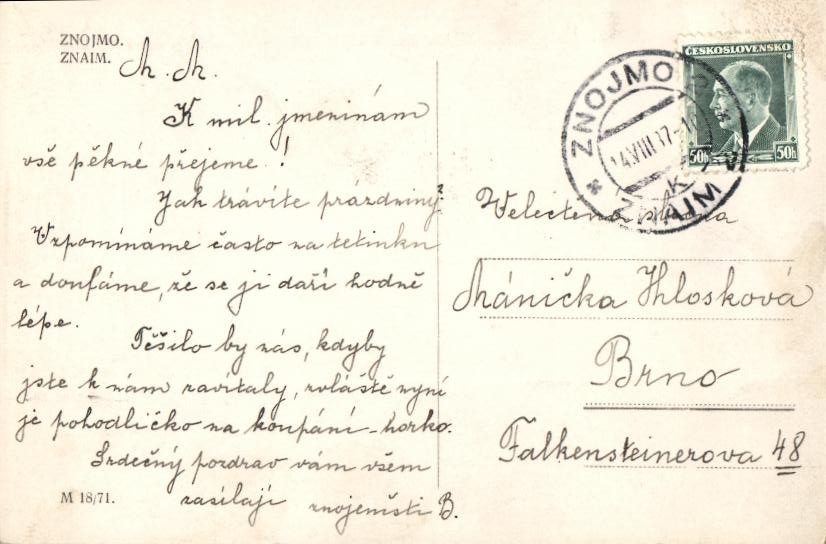 ZNOJMO.
ZNAIM.
M. M.
K mil. jmeninám
vše pěkné přejeme!
Jak trávíte prázdniny?
Vzpomínáme často na tetinku
a doufáme, že se ji daří hodně
lépe.
Těšilo by nás, kdyby
jste k nám zavítaly, zvláště nyní
je pohodlíčko na koupání - horko.
Srdečný pozdrav vám všem
zasílají znojemšti B.
M 18/71.
ČESKOSLOVENSKO
50h 50h
ZNOJMO
ZNAIM
Velectěná slečna
Mánička Hlosková
Brno
Falkensteinerova 48